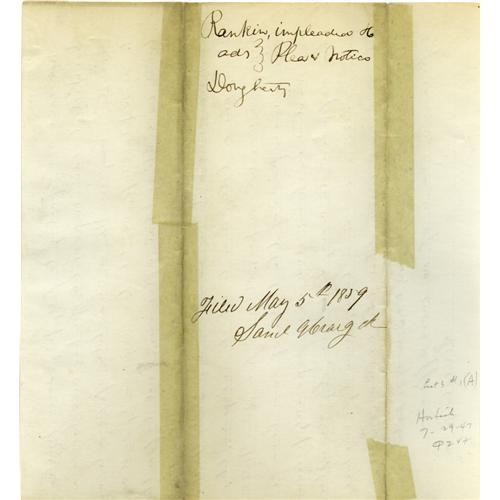 Rankin, impleaded &c
ads } Plea & Notice
Dougherty
Filed May 5th 1859
Saml G Craig clk
7-29-47